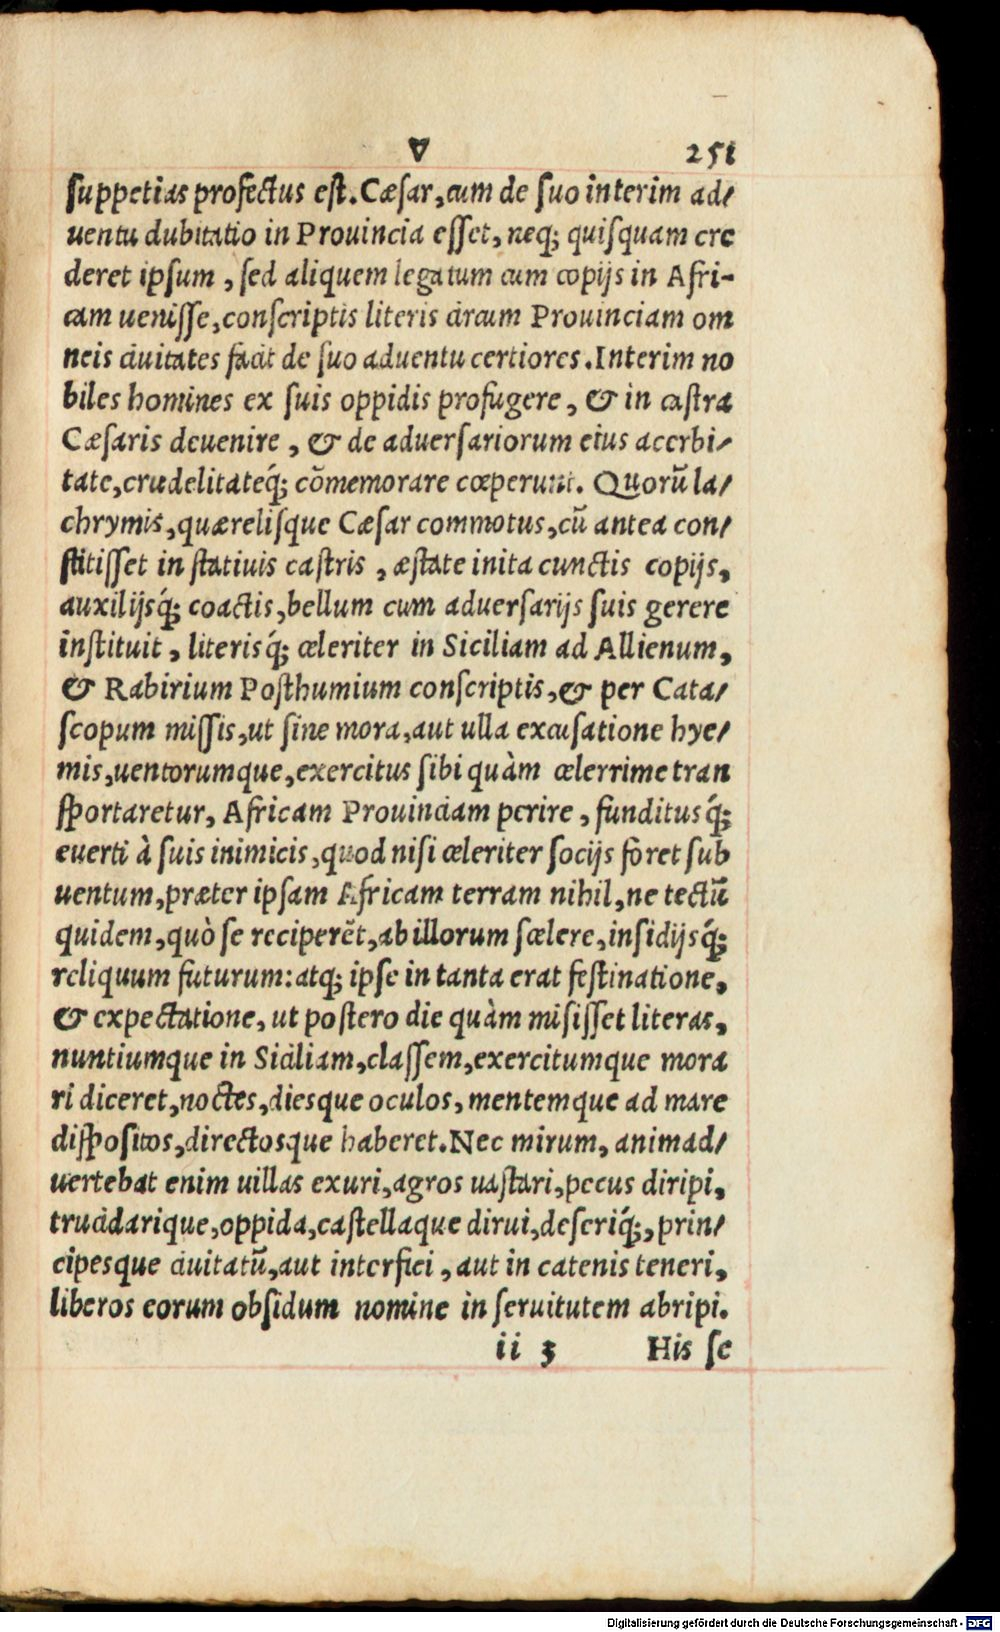 V 251
suppetias profectus est. Cæsar, cum de suo interim ad/
uentu dubitatio in Prouincia esset, neq; quisquam cre
deret ipsum, sed aliquem legatum cum copijs in Afri-
cam uenisse, conscriptis literis circum Prouinciam om
neis ciuitates facit de suo aduentu certiores. Interim no
biles homines ex suis oppidis profugere, & in castra
Cæsaris deuenire, & de aduersariorum eius acerbi/
tate, crudelitateq́; cõmemorare cœperunt. Quorũ la/
chrymis, quærelisque Cæsar commotus, cũ antea con/
stitisset in statiuis castris, æstate inita cunctis copijs,
auxilijsq́; coactis, bellum cum aduersarijs suis gerere
instituit, literisq́; celeriter in Siciliam ad Allienum,
& Rabirium Posthumium conscriptis, & per Cata/
scopum missis, ut sine mora, aut ulla excusatione hye/
mis, uentorumque, exercitus sibi quàm celerrime tran
sportaretur, Africam Prouinciam perire, funditusq́;
euerti à suis inimicis, quod nisi celeriter socijs foret sub
uentum, præter ipsam Africam terram nihil, ne tectũ
quidem, quò se reciperẽt, ab illorum scelere, insidijsq́;
reliquum futurum: atq; ipse in tanta erat festinatione,
& expectatione, ut postero die quàm misisset literas,
nuntiumque in Siciliam, classem, exercitumque mora
ri diceret, noctes, diesque oculos, mentemque ad mare
dispositos, directosque haberet. Nec mirum, animad/
uertebat enim uillas exuri, agros uastari, pecus diripi,
trucidarique, oppida, castellaque dirui, deseriq́;, prin/
cipesque ciuitatũ, aut interfici, aut in catenis teneri,
liberos eorum obsidum nomine in seruitutem abripi.
ii 3 His se
Digitalisierung gefördert durch die Deutsche Forschungsgemeinschaft - DFG